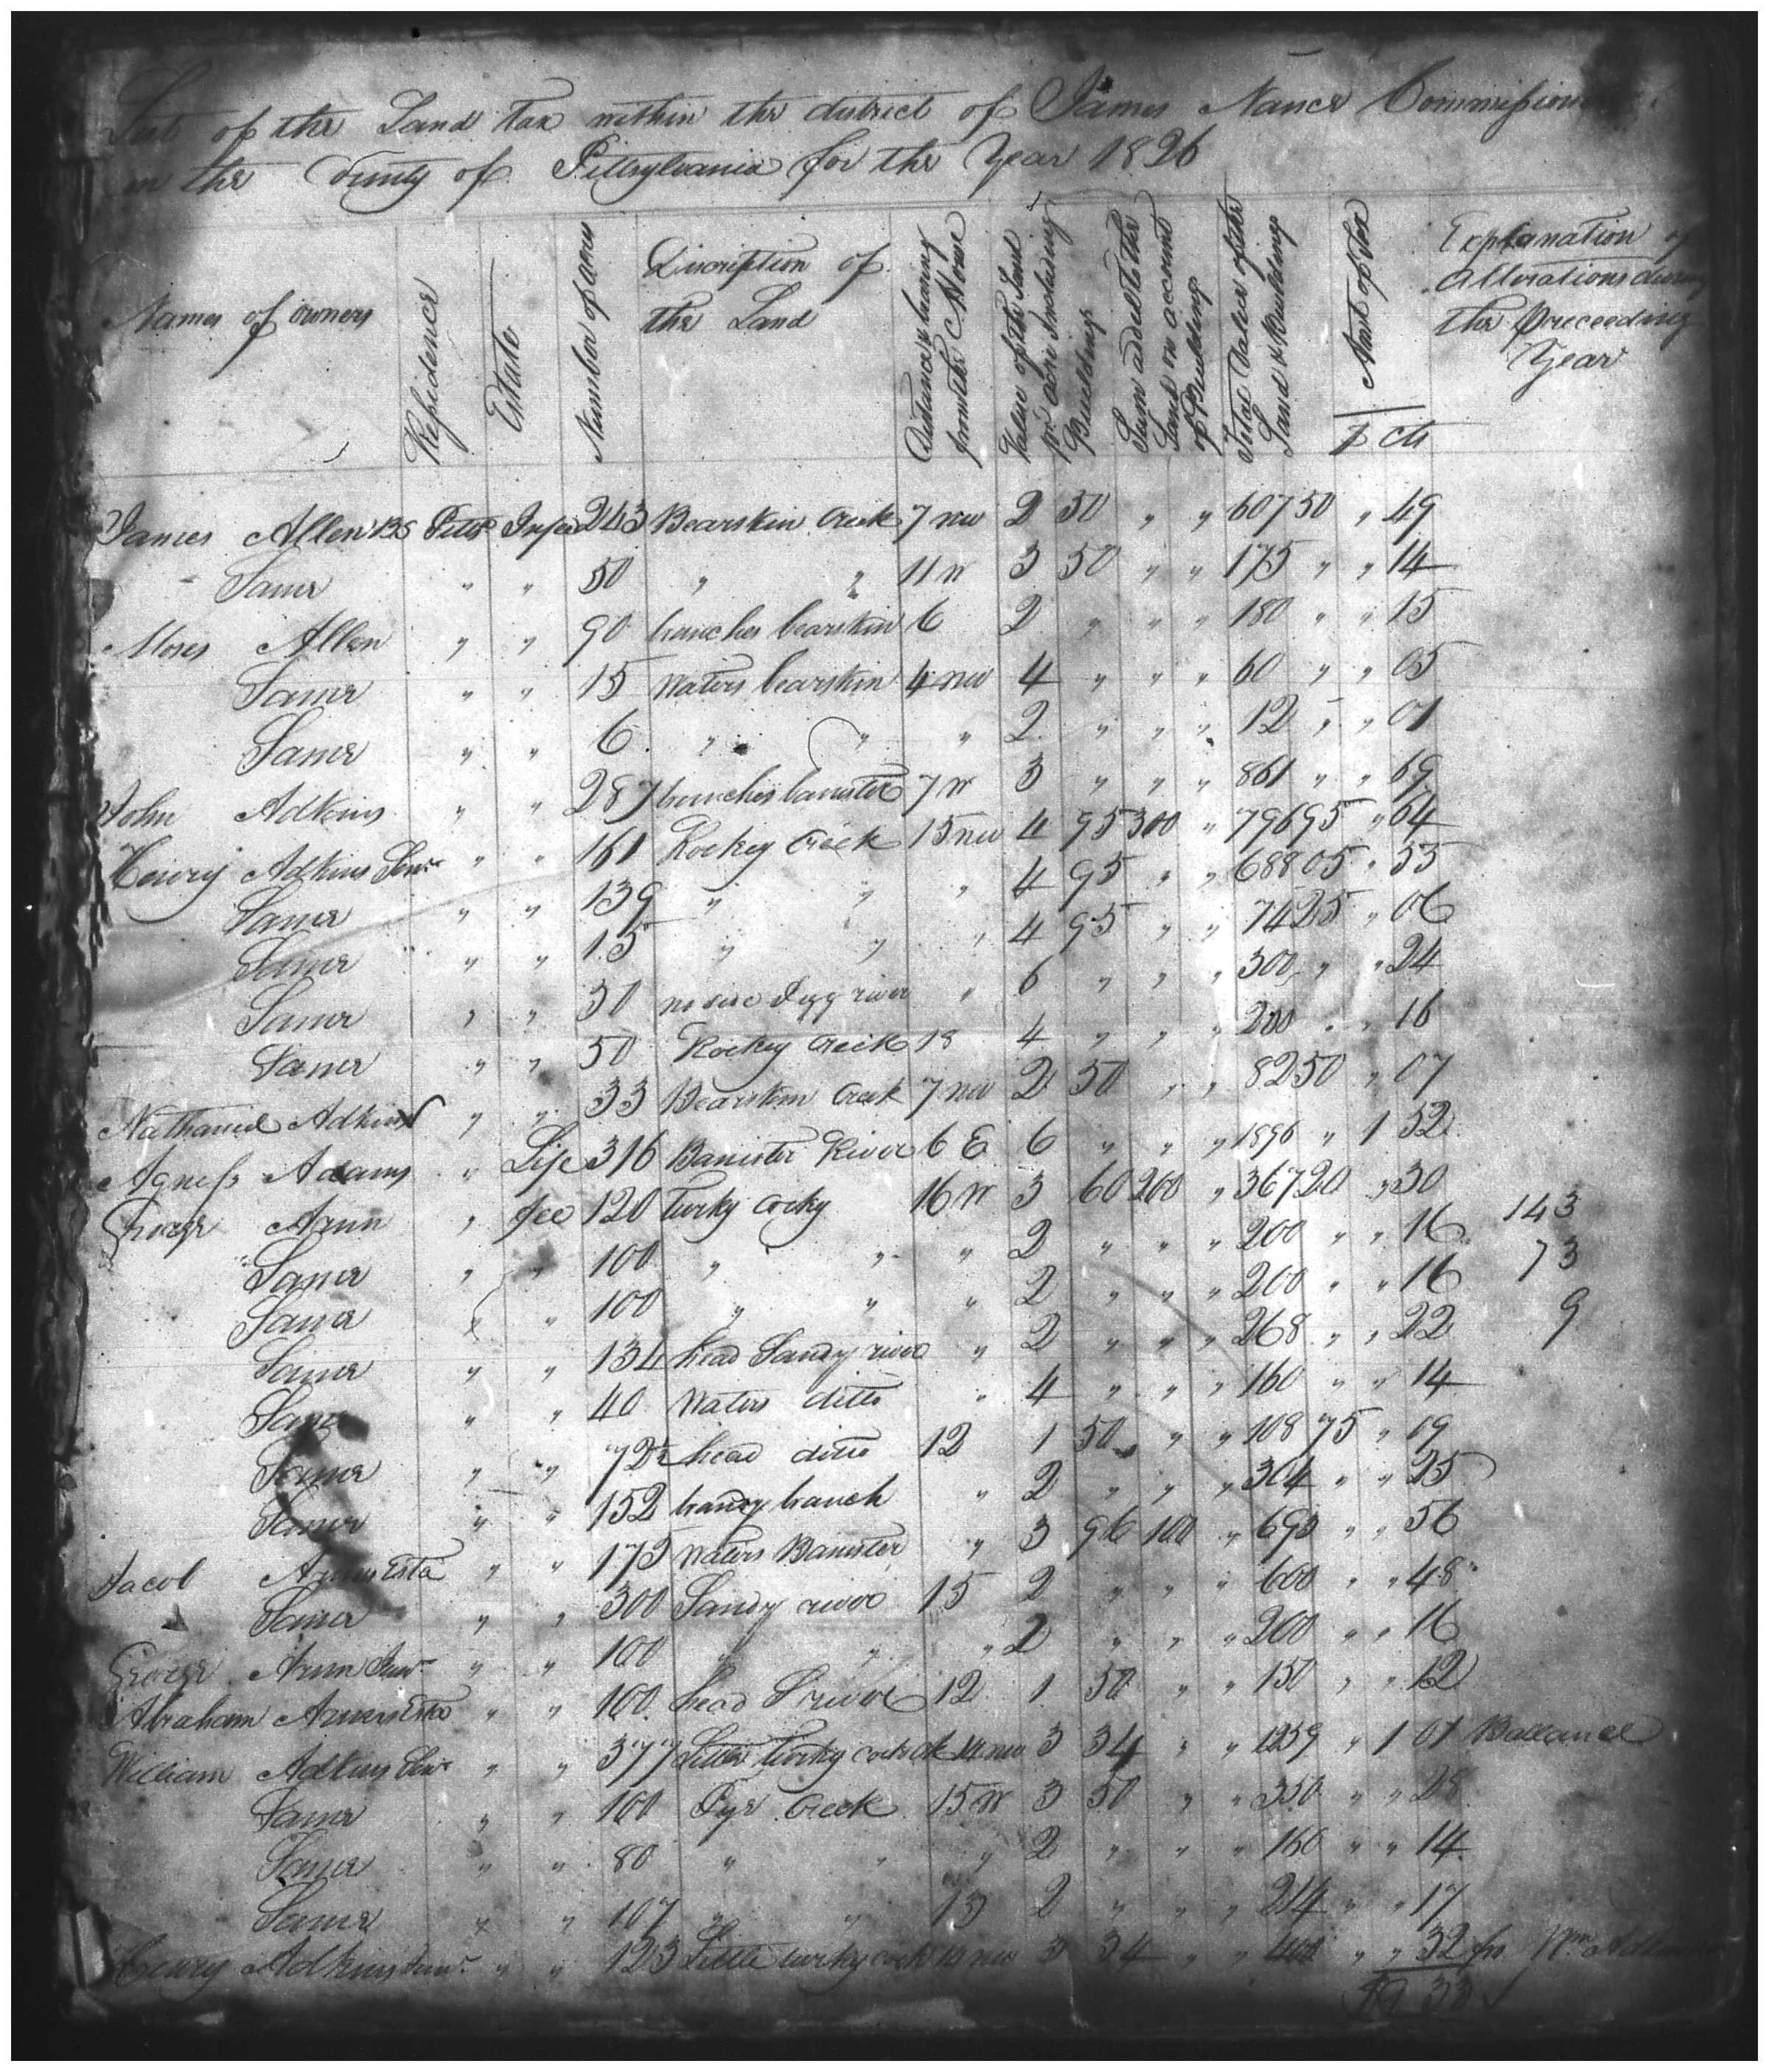 List of the Land tax within the district of James Nance Commissioner
in the County of Pittsylvania for the Year 1826
Names of owners
Residence
Estate
Number of acres
Discription of the Land
distance & bearing from the C House
Value of the Land pr acre Including Buildings
Sum added to the Land on account of Buildings
Total Value of the Land & Buildings
Amt of tax
$ cts
Explanation of alterations during the preceeding Year
James Allen BS Pitts 243 Bearskin Creek 7 nw 2 50 " " 607 50 " 49
Same " " 50 " " 11 W 3 50 " " 175 " " 14
Moses Allen " " 90 branches bearskin 6 2 " " " 180 " " 15
Same " " 15 waters bearskin 4 nw 4 " " " 60 " " 05
Same " " 6 " " " 2 " " " 12 " " 01
John Adkins " " 287 branches banister 7 W 3 " " " 861 " " 69
Henry Adkins Senr " " 161 Rockey Creek 15 nw 4 95 300 " 796 95 " 64
Same " " 139 " " " 4 95 " " 688 05 " 55
Same " " 15 " " " 4 95 " " 74 25 " 06
Same " " 50 no side Pigg river " 6 " " " 300 " " 24
Same " " 50 Rockey Creek 18 4 " " " 200 " " 16
Nathaniel Adkins " " 33 Bearskin Creek 7 nw 2 50 " " 82 50 " 07
Agness Adams " Life 316 Banister River 6 E 6 " " " 1896 " 1 52
George Arnn " fee 120 turky cocky 16 W 3 60 200 " 367 20 " 30
143
Same " " 100 " " " 2 " " " 200 " " 16
73
Same " " 100 " " " 2 " " " 200 " " 16
9
Same " " 134 head Sandy river " 2 " " " 268 " " 22
Same " " 40 waters ditto " 4 " " " 160 " " 14
Same " " 72½ head ditto 12 1 50 " " 108 75 " 09
Same " " 152 branch " 2 " " " 304 " " 25
Jacob Esta " " 175 waters Banister " 3 96 100 " 693 " " 56
Same " " 300 Sandy river 15 2 " " " 600 " " 48
George Arnn Junr " " 100 " " " 2 " " " 200 " " 16
Abraham Esta " " 100 head S river 12 1 50 " " 150 " " 12
William Adkins Senr " " 377 Little turky cock ck 14 nw 3 34 " " 1259 " 1 01 Ballance
Same " " 100 Creek 15 W 3 50 " " 350 " " 28
Same " " 80 " " " 2 " " " 160 " " 14
Same " " 107 " " 13 2 " " " 214 " " 17
Henry Adkins Junr " " 123 Little turky cock nw 3 34 " " " " 32 fr Wm Adkins